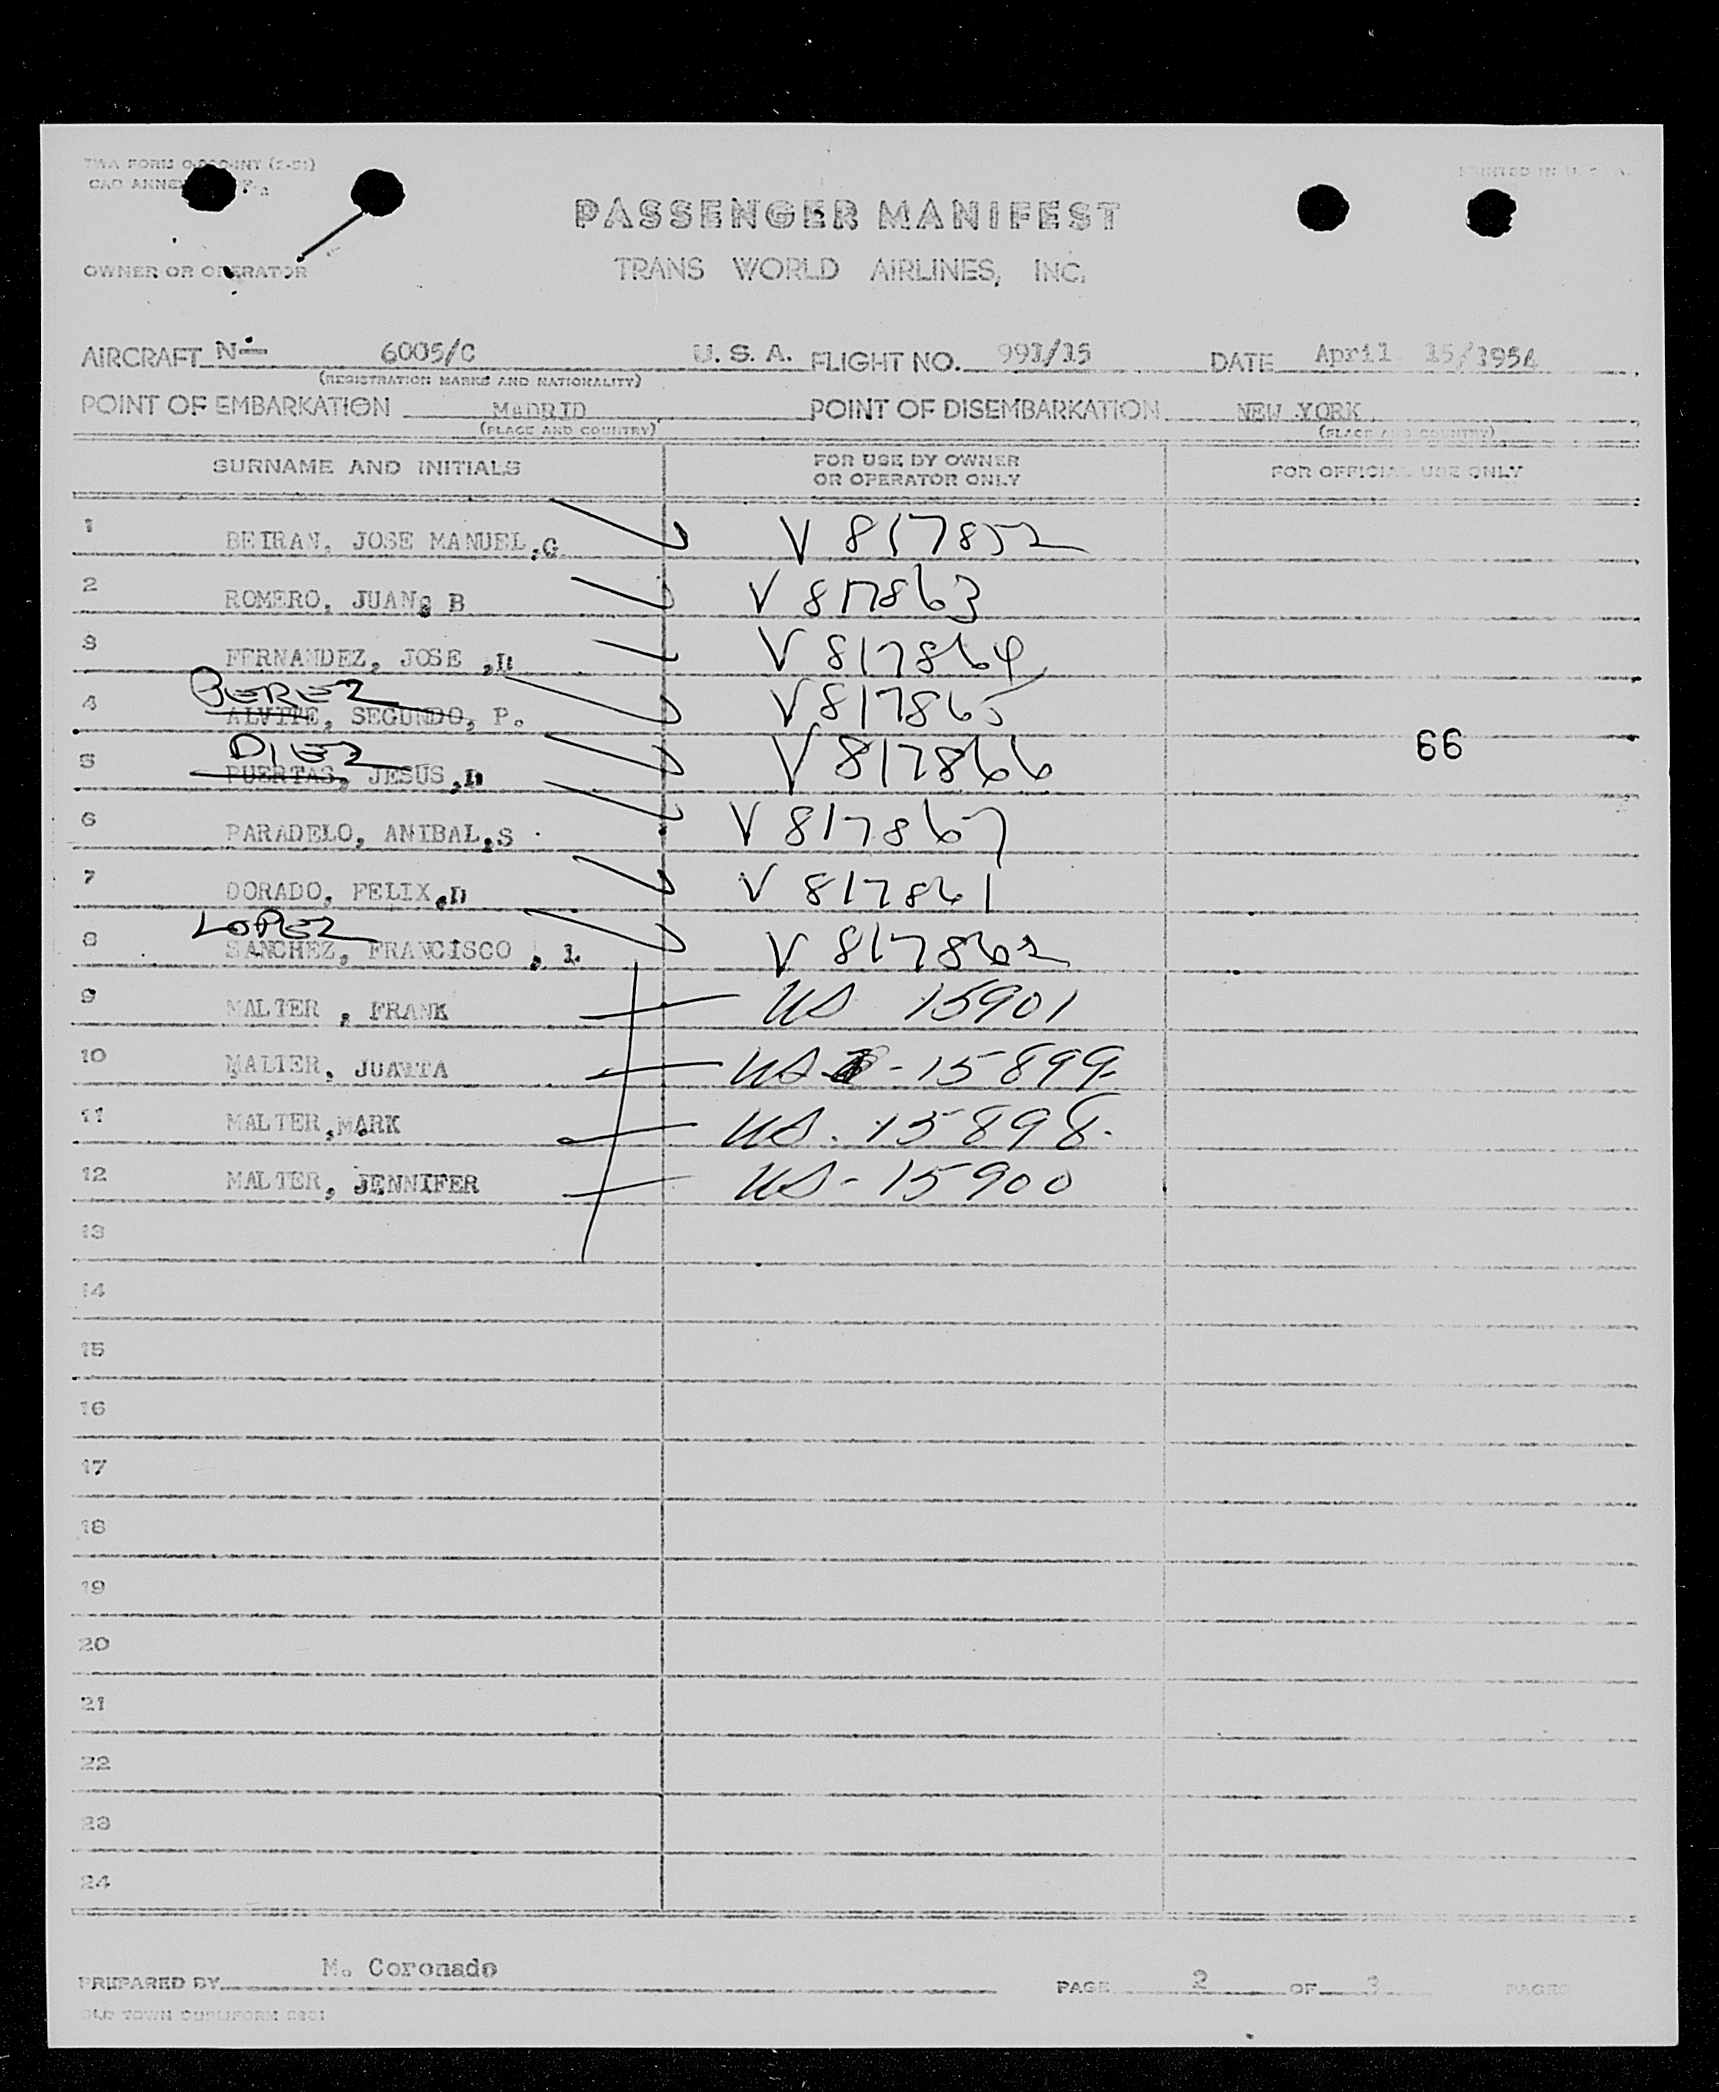 TWA FORM
PRINTED IN U. S. A.
PASSENGER MANIFEST
OWNER OR OPERATOR
TRANS WORLD AIRLINES, INC.
AIRCRAFT N- 6005/C U. S. A. FLIGHT NO. 991/15 DATE April 15/1954
(REGISTRATION MARKS AND NATIONALITY)
POINT OF EMBARKATION MaDRID POINT OF DISEMBARKATION NEW YORK
(PLACE AND COUNTRY) (PLACE AND COUNTRY)
SURNAME AND INITIALS FOR USE BY OWNER OR OPERATOR ONLY FOR OFFICIAL USE ONLY
1 BEIRAN, JOSE MANUEL,G V 817852
2 ROMERO, JUAN, B V 817863
3 FERNANDEZ, JOSE ,D V 817864
BEREZ
4 ALVITE, SEGUNDO, P. V 817865
DIEZ 66
5 PUERTAS, JESUS,D V 817866
6 PARADELO, ANIBAL,S V 817867
7 DORADO, FELIX,D V 817861
LOPEZ
8 SANCHEZ, FRANCISCO , L V 817862
9 MALTER , FRANK US 15901
10 MALTER, JUANTA US - 15899
11 MALTER,MARK US. 15898.
12 MALTER, JENNIFER US - 15900
13
14
15
16
17
18
19
20
21
22
23
24
PREPARED BY M. Coronado PAGE 2 OF 3 PAGES
OLD TOWN DUPLIFORM